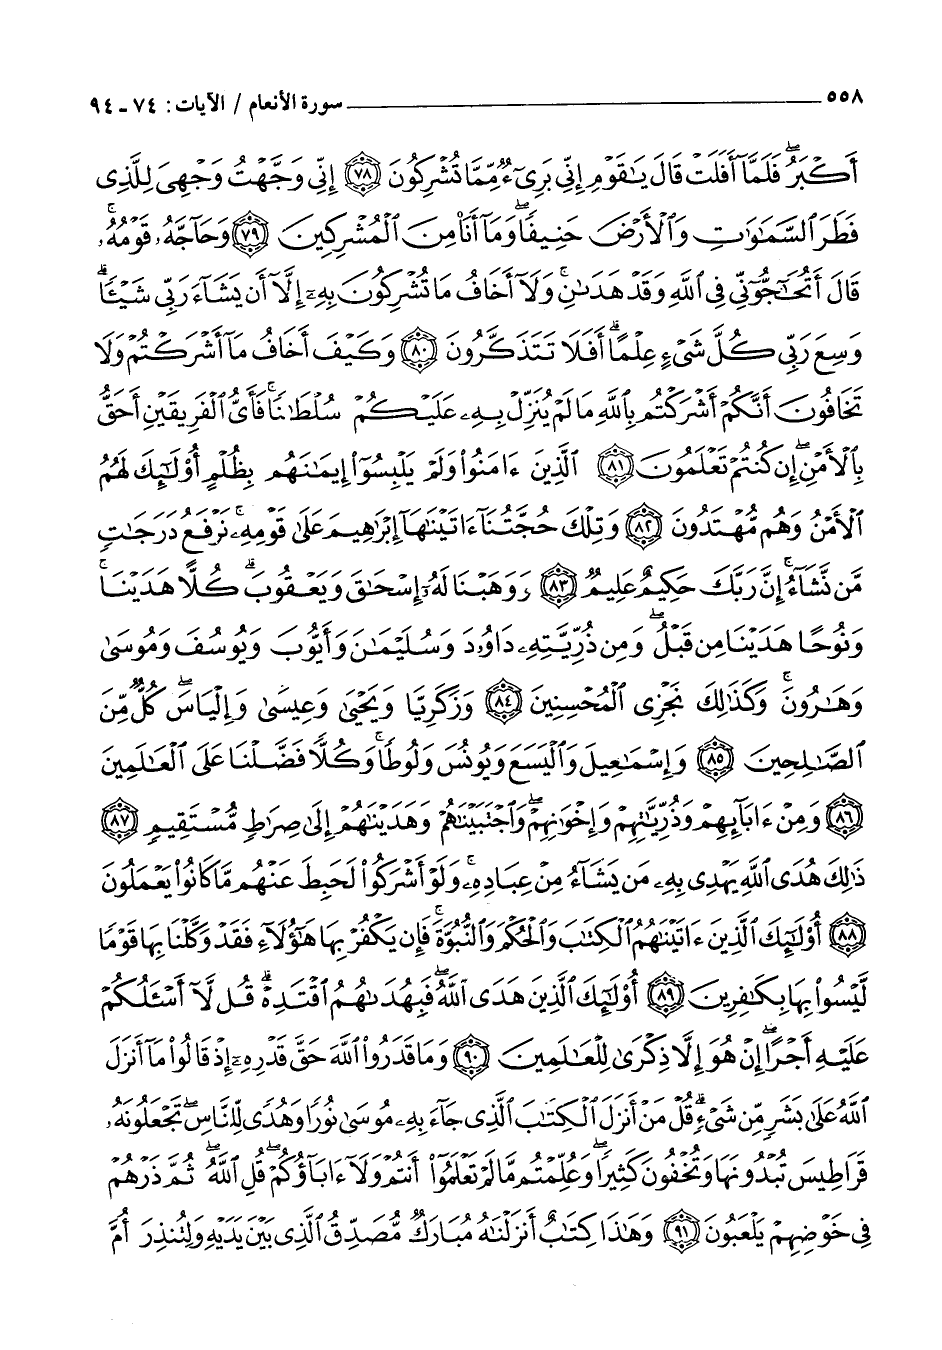 ٥٥٨ سورة الأنعام / الآيات: ٧٤ ـ ٩٤
أَكْبَرُ ۖ فَلَمَّآ أَفَلَتْ قَالَ يَٰقَوْمِ إِنِّى بَرِىٓءٌ مِّمَّا تُشْرِكُونَ ﴿٧٨﴾ إِنِّى وَجَّهْتُ وَجْهِىَ لِلَّذِى
فَطَرَ ٱلسَّمَٰوَٰتِ وَٱلْأَرْضَ حَنِيفًا ۖ وَمَآ أَنَا۠ مِنَ ٱلْمُشْرِكِينَ ﴿٧٩﴾ وَحَآجَّهُۥ قَوْمُهُۥ ۚ
قَالَ أَتُحَٰٓجُّوٓنِّى فِى ٱللَّهِ وَقَدْ هَدَىٰنِ ۚ وَلَآ أَخَافُ مَا تُشْرِكُونَ بِهِۦٓ إِلَّآ أَن يَشَآءَ رَبِّى شَيْـًٔا ۗ
وَسِعَ رَبِّى كُلَّ شَىْءٍ عِلْمًا ۗ أَفَلَا تَتَذَكَّرُونَ ﴿٨٠﴾ وَكَيْفَ أَخَافُ مَآ أَشْرَكْتُمْ وَلَا
تَخَافُونَ أَنَّكُمْ أَشْرَكْتُم بِٱللَّهِ مَا لَمْ يُنَزِّلْ بِهِۦ عَلَيْكُمْ سُلْطَٰنًا ۚ فَأَىُّ ٱلْفَرِيقَيْنِ أَحَقُّ
بِٱلْأَمْنِ ۖ إِن كُنتُمْ تَعْلَمُونَ ﴿٨١﴾ ٱلَّذِينَ ءَامَنُوا۟ وَلَمْ يَلْبِسُوٓا۟ إِيمَٰنَهُم بِظُلْمٍ أُو۟لَٰٓئِكَ لَهُمُ
ٱلْأَمْنُ وَهُم مُّهْتَدُونَ ﴿٨٢﴾ وَتِلْكَ حُجَّتُنَآ ءَاتَيْنَٰهَآ إِبْرَٰهِيمَ عَلَىٰ قَوْمِهِۦ ۚ نَرْفَعُ دَرَجَٰتٍ
مَّن نَّشَآءُ ۗ إِنَّ رَبَّكَ حَكِيمٌ عَلِيمٌ ﴿٨٣﴾ وَوَهَبْنَا لَهُۥٓ إِسْحَٰقَ وَيَعْقُوبَ ۚ كُلًّا هَدَيْنَا ۚ
وَنُوحًا هَدَيْنَا مِن قَبْلُ ۖ وَمِن ذُرِّيَّتِهِۦ دَاوُۥدَ وَسُلَيْمَٰنَ وَأَيُّوبَ وَيُوسُفَ وَمُوسَىٰ
وَهَٰرُونَ ۚ وَكَذَٰلِكَ نَجْزِى ٱلْمُحْسِنِينَ ﴿٨٤﴾ وَزَكَرِيَّا وَيَحْيَىٰ وَعِيسَىٰ وَإِلْيَاسَ ۖ كُلٌّ مِّنَ
ٱلصَّٰلِحِينَ ﴿٨٥﴾ وَإِسْمَٰعِيلَ وَٱلْيَسَعَ وَيُونُسَ وَلُوطًا ۚ وَكُلًّا فَضَّلْنَا عَلَى ٱلْعَٰلَمِينَ
﴿٨٦﴾ وَمِنْ ءَابَآئِهِمْ وَذُرِّيَّٰتِهِمْ وَإِخْوَٰنِهِمْ ۖ وَٱجْتَبَيْنَٰهُمْ وَهَدَيْنَٰهُمْ إِلَىٰ صِرَٰطٍ مُّسْتَقِيمٍ ﴿٨٧﴾
ذَٰلِكَ هُدَى ٱللَّهِ يَهْدِى بِهِۦ مَن يَشَآءُ مِنْ عِبَادِهِۦ ۚ وَلَوْ أَشْرَكُوا۟ لَحَبِطَ عَنْهُم مَّا كَانُوا۟ يَعْمَلُونَ
﴿٨٨﴾ أُو۟لَٰٓئِكَ ٱلَّذِينَ ءَاتَيْنَٰهُمُ ٱلْكِتَٰبَ وَٱلْحُكْمَ وَٱلنُّبُوَّةَ ۚ فَإِن يَكْفُرْ بِهَا هَٰٓؤُلَآءِ فَقَدْ وَكَّلْنَا بِهَا قَوْمًا
لَّيْسُوا۟ بِهَا بِكَٰفِرِينَ ﴿٨٩﴾ أُو۟لَٰٓئِكَ ٱلَّذِينَ هَدَى ٱللَّهُ ۖ فَبِهُدَىٰهُمُ ٱقْتَدِهْ ۗ قُل لَّآ أَسْـَٔلُكُمْ
عَلَيْهِ أَجْرًا ۖ إِنْ هُوَ إِلَّا ذِكْرَىٰ لِلْعَٰلَمِينَ ﴿٩٠﴾ وَمَا قَدَرُوا۟ ٱللَّهَ حَقَّ قَدْرِهِۦٓ إِذْ قَالُوا۟ مَآ أَنزَلَ
ٱللَّهُ عَلَىٰ بَشَرٍ مِّن شَىْءٍ ۗ قُلْ مَنْ أَنزَلَ ٱلْكِتَٰبَ ٱلَّذِى جَآءَ بِهِۦ مُوسَىٰ نُورًا وَهُدًى لِّلنَّاسِ ۖ تَجْعَلُونَهُۥ
قَرَاطِيسَ تُبْدُونَهَا وَتُخْفُونَ كَثِيرًا ۖ وَعُلِّمْتُم مَّا لَمْ تَعْلَمُوٓا۟ أَنتُمْ وَلَآ ءَابَآؤُكُمْ ۖ قُلِ ٱللَّهُ ۖ ثُمَّ ذَرْهُمْ
فِى خَوْضِهِمْ يَلْعَبُونَ ﴿٩١﴾ وَهَٰذَا كِتَٰبٌ أَنزَلْنَٰهُ مُبَارَكٌ مُّصَدِّقُ ٱلَّذِى بَيْنَ يَدَيْهِ وَلِتُنذِرَ أُمَّ